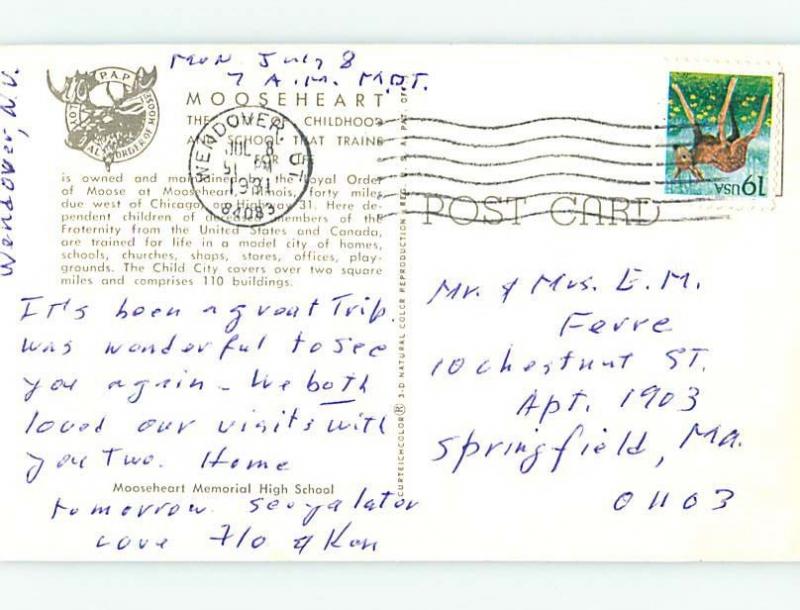 Mon July 8
7 A.M. M.D.T.
Wendover, N.V.
P.A.P.
LOYAL ORDER OF MOOSE
MOOSEHEART
THE CHILDHOOD
SCHOOL THAT TRAINS
FOR
is owned and maintained by the Royal Order
of Moose at Mooseheart, Illinois, forty miles
due west of Chicago, on Highway 31. Here de-
pendent children of deceased members of the
Fraternity from the United States and Canada,
are trained for life in a model city of homes,
schools, churches, shops, stores, offices, play-
grounds. The Child City covers over two square
miles and comprises 110 buildings.
WENDOVER UT
JUL 8
PM
1991
84083
It's been a great Trip.
Was wonderful to see
you again - We both
loved our visits with
you two. Home
Mooseheart Memorial High School
tomorrow. see ya later
Love Flo & Ken
CURTEICHCOLOR® 3-D NATURAL COLOR REPRODUCTION REG. U.S.A. PAT. OFF.
19USA
POST CARD
Mr. & Mrs. E.M.
Ferre
10 chestnut ST.
Apt. 1903
Springfield, Ma.
01103